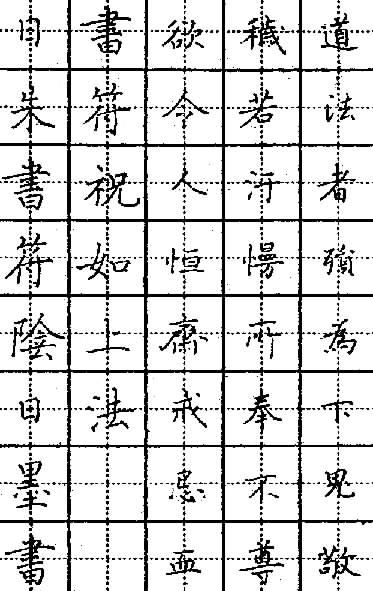 日朱書符陰日墨書
書符祝如上法
欲令人恒齋戒忌血
穢若汙慢所奉不尊
道法者為下鬼敬